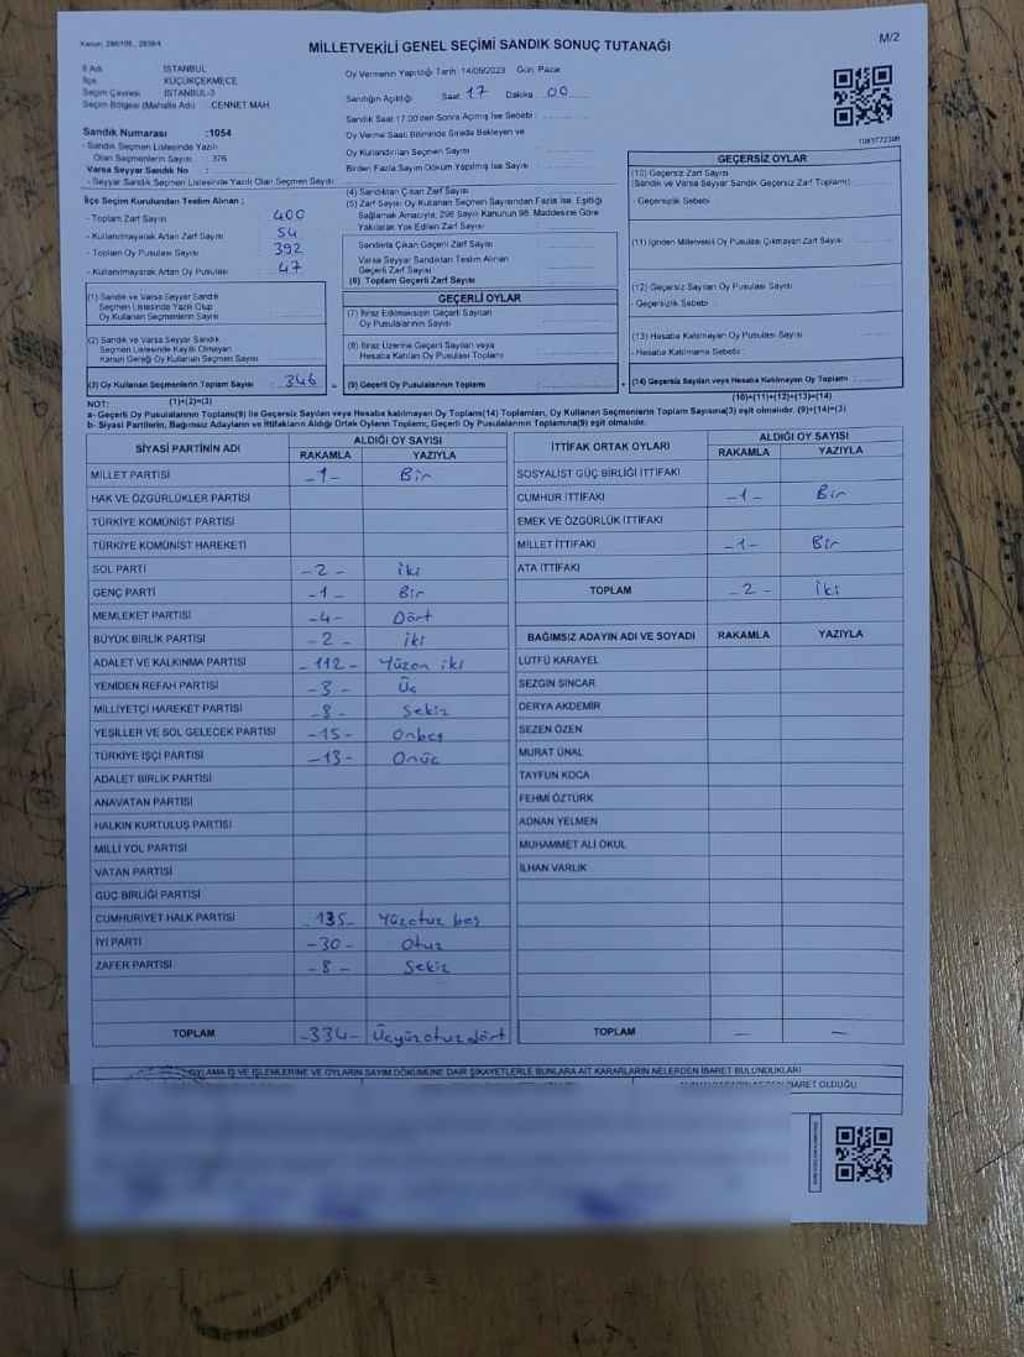 MİLLETVEKİLİ GENEL SEÇİMİ SANDIK SONUÇ TUTANAĞI
M/2
İSTANBUL
KÜÇÜKÇEKMECE
Seçim Çevresi : İSTANBUL-3
Seçim Bölgesi (Mahalle Adı) : CENNET MAH.
Sandık Numarası :1054
- Sandık Seçmen Listesinde Yazılı
Olan Seçmenlerin Sayısı : 376
Varsa Seyyar Sandık No :
- Seyyar Sandık Seçmen Listesinde Yazılı Olan Seçmen Sayısı
İlçe Seçim Kurulundan Teslim Alınan :
- Toplam Zarf Sayısı 400
- Kullanılmayarak Artan Zarf Sayısı 54
- Toplam Oy Pusulası Sayısı 392
- Kullanılmayarak Artan Oy Pusulası 47
(1) Sandık ve Varsa Seyyar Sandık
Seçmen Listesinde Yazılı Olup
Oy Kullanan Seçmenlerin Sayısı
(2) Sandık ve Varsa Seyyar Sandık
Seçmen Listesinde Kayıtlı Olmayan
Kanun Gereği Oy Kullanan Seçmen Sayısı
(3) Oy Kullanan Seçmenlerin Toplam Sayısı : 346
Oy Vermenin Yapıldığı Tarih: 14/05/2023 Gün: Pazar
Sandığın Açıldığı Saat: 17 Dakika 00
Sandık Saat 17.00'den Sonra Açılmış İse Sebebi :
Oy Verme Saati Bitiminde Sırada Bekleyen ve
Oy Kullandırılan Seçmen Sayısı
Birden Fazla Sayım Döküm Yapılmış İse Sayısı
(4) Sandıktan Çıkan Zarf Sayısı
(5) Zarf Sayısı Oy Kullanan Seçmen Sayısından Fazla İse, Eşitliği
Sağlamak Amacıyla, 298 Sayılı Kanunun 98. Maddesine Göre
Yakılarak Yok Edilen Zarf Sayısı
Sandıkta Çıkan Geçerli Zarf Sayısı
Varsa Seyyar Sandıktan Teslim Alınan
Geçerli Zarf Sayısı
(6) Toplam Geçerli Zarf Sayısı
GEÇERLİ OYLAR
(7) İtiraz Edilmeksizin Geçerli Sayılan
Oy Pusulalarının Sayısı
(8) İtiraz Üzerine Geçerli Sayılan veya
Hesaba Katılan Oy Pusulası Toplamı
(9) Geçerli Oy Pusulalarının Toplamı
GEÇERSİZ OYLAR
(10) Geçersiz Zarf Sayısı
(Sandık ve Varsa Seyyar Sandık Geçersiz Zarf Toplamı)
- Geçersizlik Sebebi
(11) İçinden Milletvekili Oy Pusulası Çıkmayan Zarf Sayısı
(12) Geçersiz Sayılan Oy Pusulası Sayısı
- Geçersizlik Sebebi
(13) Hesaba Katılmayan Oy Pusulası Sayısı
- Hesaba Katılmama Sebebi
(14) Geçersiz Sayılan veya Hesaba Katılmayan Oy Toplamı
NOT: (1)+(2)=(3) (10)+(11)+(12)+(13)=(14)
a- Geçerli Oy Pusulalarının Toplamı(9) ile Geçersiz Sayılan veya Hesaba katılmayan Oy Toplamı(14) Toplamları, Oy Kullanan Seçmenlerin Toplam Sayısına(3) eşit olmalıdır. (9)+(14)=(3)
b- Siyasi Partilerin, Bağımsız Adayların ve İttifakların Aldığı Ortak Oyların Toplamı; Geçerli Oy Pusulalarının Toplamına(9) eşit olmalıdır.
SİYASİ PARTİNİN ADI ALDIĞI OY SAYISI
RAKAMLA YAZIYLA
MİLLET PARTİSİ -1- Bir
HAK VE ÖZGÜRLÜKLER PARTİSİ
TÜRKİYE KOMÜNİST PARTİSİ
TÜRKİYE KOMÜNİST HAREKETİ
SOL PARTİ -2- iki
GENÇ PARTİ -1- Bir
MEMLEKET PARTİSİ -4- Dört
BÜYÜK BİRLİK PARTİSİ -2- iki
ADALET VE KALKINMA PARTİSİ -112- Yüzon iki
YENİDEN REFAH PARTİSİ -3- Üç
MİLLİYETÇİ HAREKET PARTİSİ -8- Sekiz
YEŞİLLER VE SOL GELECEK PARTİSİ -15- Onbeş
TÜRKİYE İŞÇİ PARTİSİ -13- Onüç
ADALET BİRLİK PARTİSİ
ANAVATAN PARTİSİ
HALKIN KURTULUŞ PARTİSİ
MİLLİ YOL PARTİSİ
VATAN PARTİSİ
GÜÇ BİRLİĞİ PARTİSİ
CUMHURİYET HALK PARTİSİ 135- Yüzotuz beş
İYİ PARTİ -30- Otuz
ZAFER PARTİSİ -8- Sekiz
TOPLAM -334- Üçyüzotuzdört
İTTİFAK ORTAK OYLARI ALDIĞI OY SAYISI
RAKAMLA YAZIYLA
SOSYALİST GÜÇ BİRLİĞİ İTTİFAKI
CUMHUR İTTİFAKI -1- Bir
EMEK VE ÖZGÜRLÜK İTTİFAKI
MİLLET İTTİFAKI -1- Bir
ATA İTTİFAKI
TOPLAM -2- iki
BAĞIMSIZ ADAYIN ADI VE SOYADI RAKAMLA YAZIYLA
LÜTFÜ KARAYEL
SEZGİN SİNCAR
DERYA AKDEMİR
SEZEN ÖZEN
MURAT ÜNAL
TAYFUN KOCA
FEHMİ ÖZTÜRK
ADNAN YELMEN
MUHAMMET ALİ OKUL
İLHAN VARLIK
TOPLAM — —
OYLAMA İŞ VE İŞLEMLERİNE VE OYLARIN SAYIM DÖKÜMÜNE DAİR ŞİKAYETLERLE BUNLARA AİT KARARLARIN NELERDEN İBARET BULUNDUKLARI